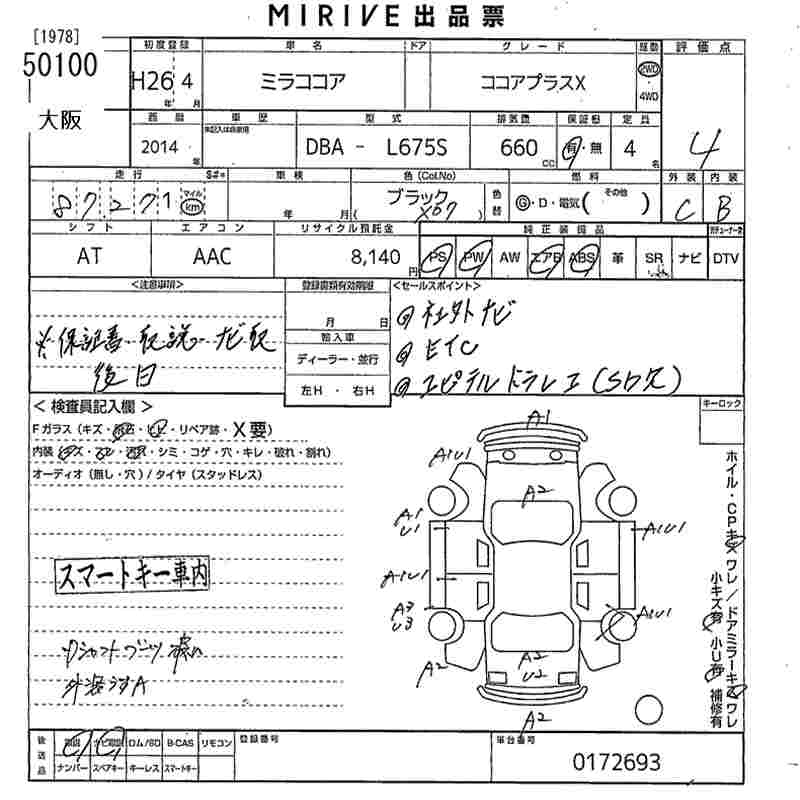 MIRIVE出品票
[1978]
50100
大阪
初度登録 車名 ドア グレード 駆動 評価点
H26 年 4 月 ミラココア ココアプラスX 2WD ・ 4WD 4
西暦 車歴 型式 排気量 保証書 定員
2014 年 未記入は自家用 DBA - L675S 660 CC 有・無 4 名
走行 S#* 車検 色 (Col.No) 燃料 外装 内装
87271 マイル km 年 月 ブラック ( X07 ) 色替 G・D・電気 ( その他 ) C B
シフト エアコン リサイクル預託金 純正装備品
AT AAC 8,140 円 PS PW AW エアB ABS 革 SR ナビ DTV
<注意事項> 登録書類有効期限 <セールスポイント>
※保証書 取説 ナビ取
後日
月 日
輸入車
ディーラー・並行
左H ・ 右H
社外ナビ
ETC
ドラレコ (SD欠)
< 検査員記入欄 >
Fガラス (キズ・飛石・ヒビ・リペア跡・X要)
内装 (キズ・シミ・コゲ・穴・キレ・破れ・割れ)
オーディオ (無し・穴) / タイヤ (スタッドレス)
キーロック
ホイル・CPキズ ワレ / ドアミラーキズ ワレ
小キズ有 小U有 補修有
A1
A1U1
A2
A1
U1
A1U1
A1U1
A3
U3
A1U1
A2
A2
U2
A2
スマートキー車内
Dシャフトブーツ破れ
外装うすA
後送品 取説 ナビ取説 ロム/SD B-CAS リモコン 登録番号 車台番号
ナンバー スペアキー キーレス スマートキー 0172693